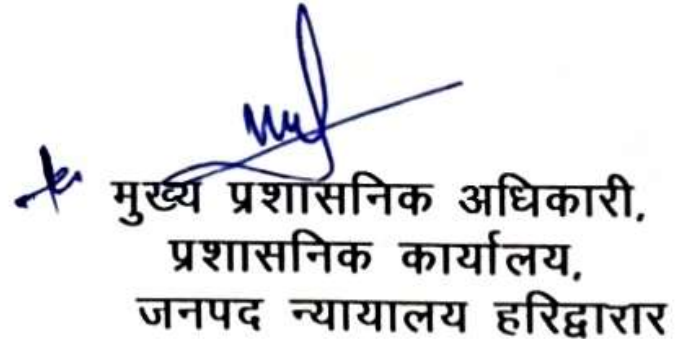 मुख्य प्रशासनिक अधिकारी,
प्रशासनिक कार्यालय,
जनपद न्यायालय हरिद्वारार